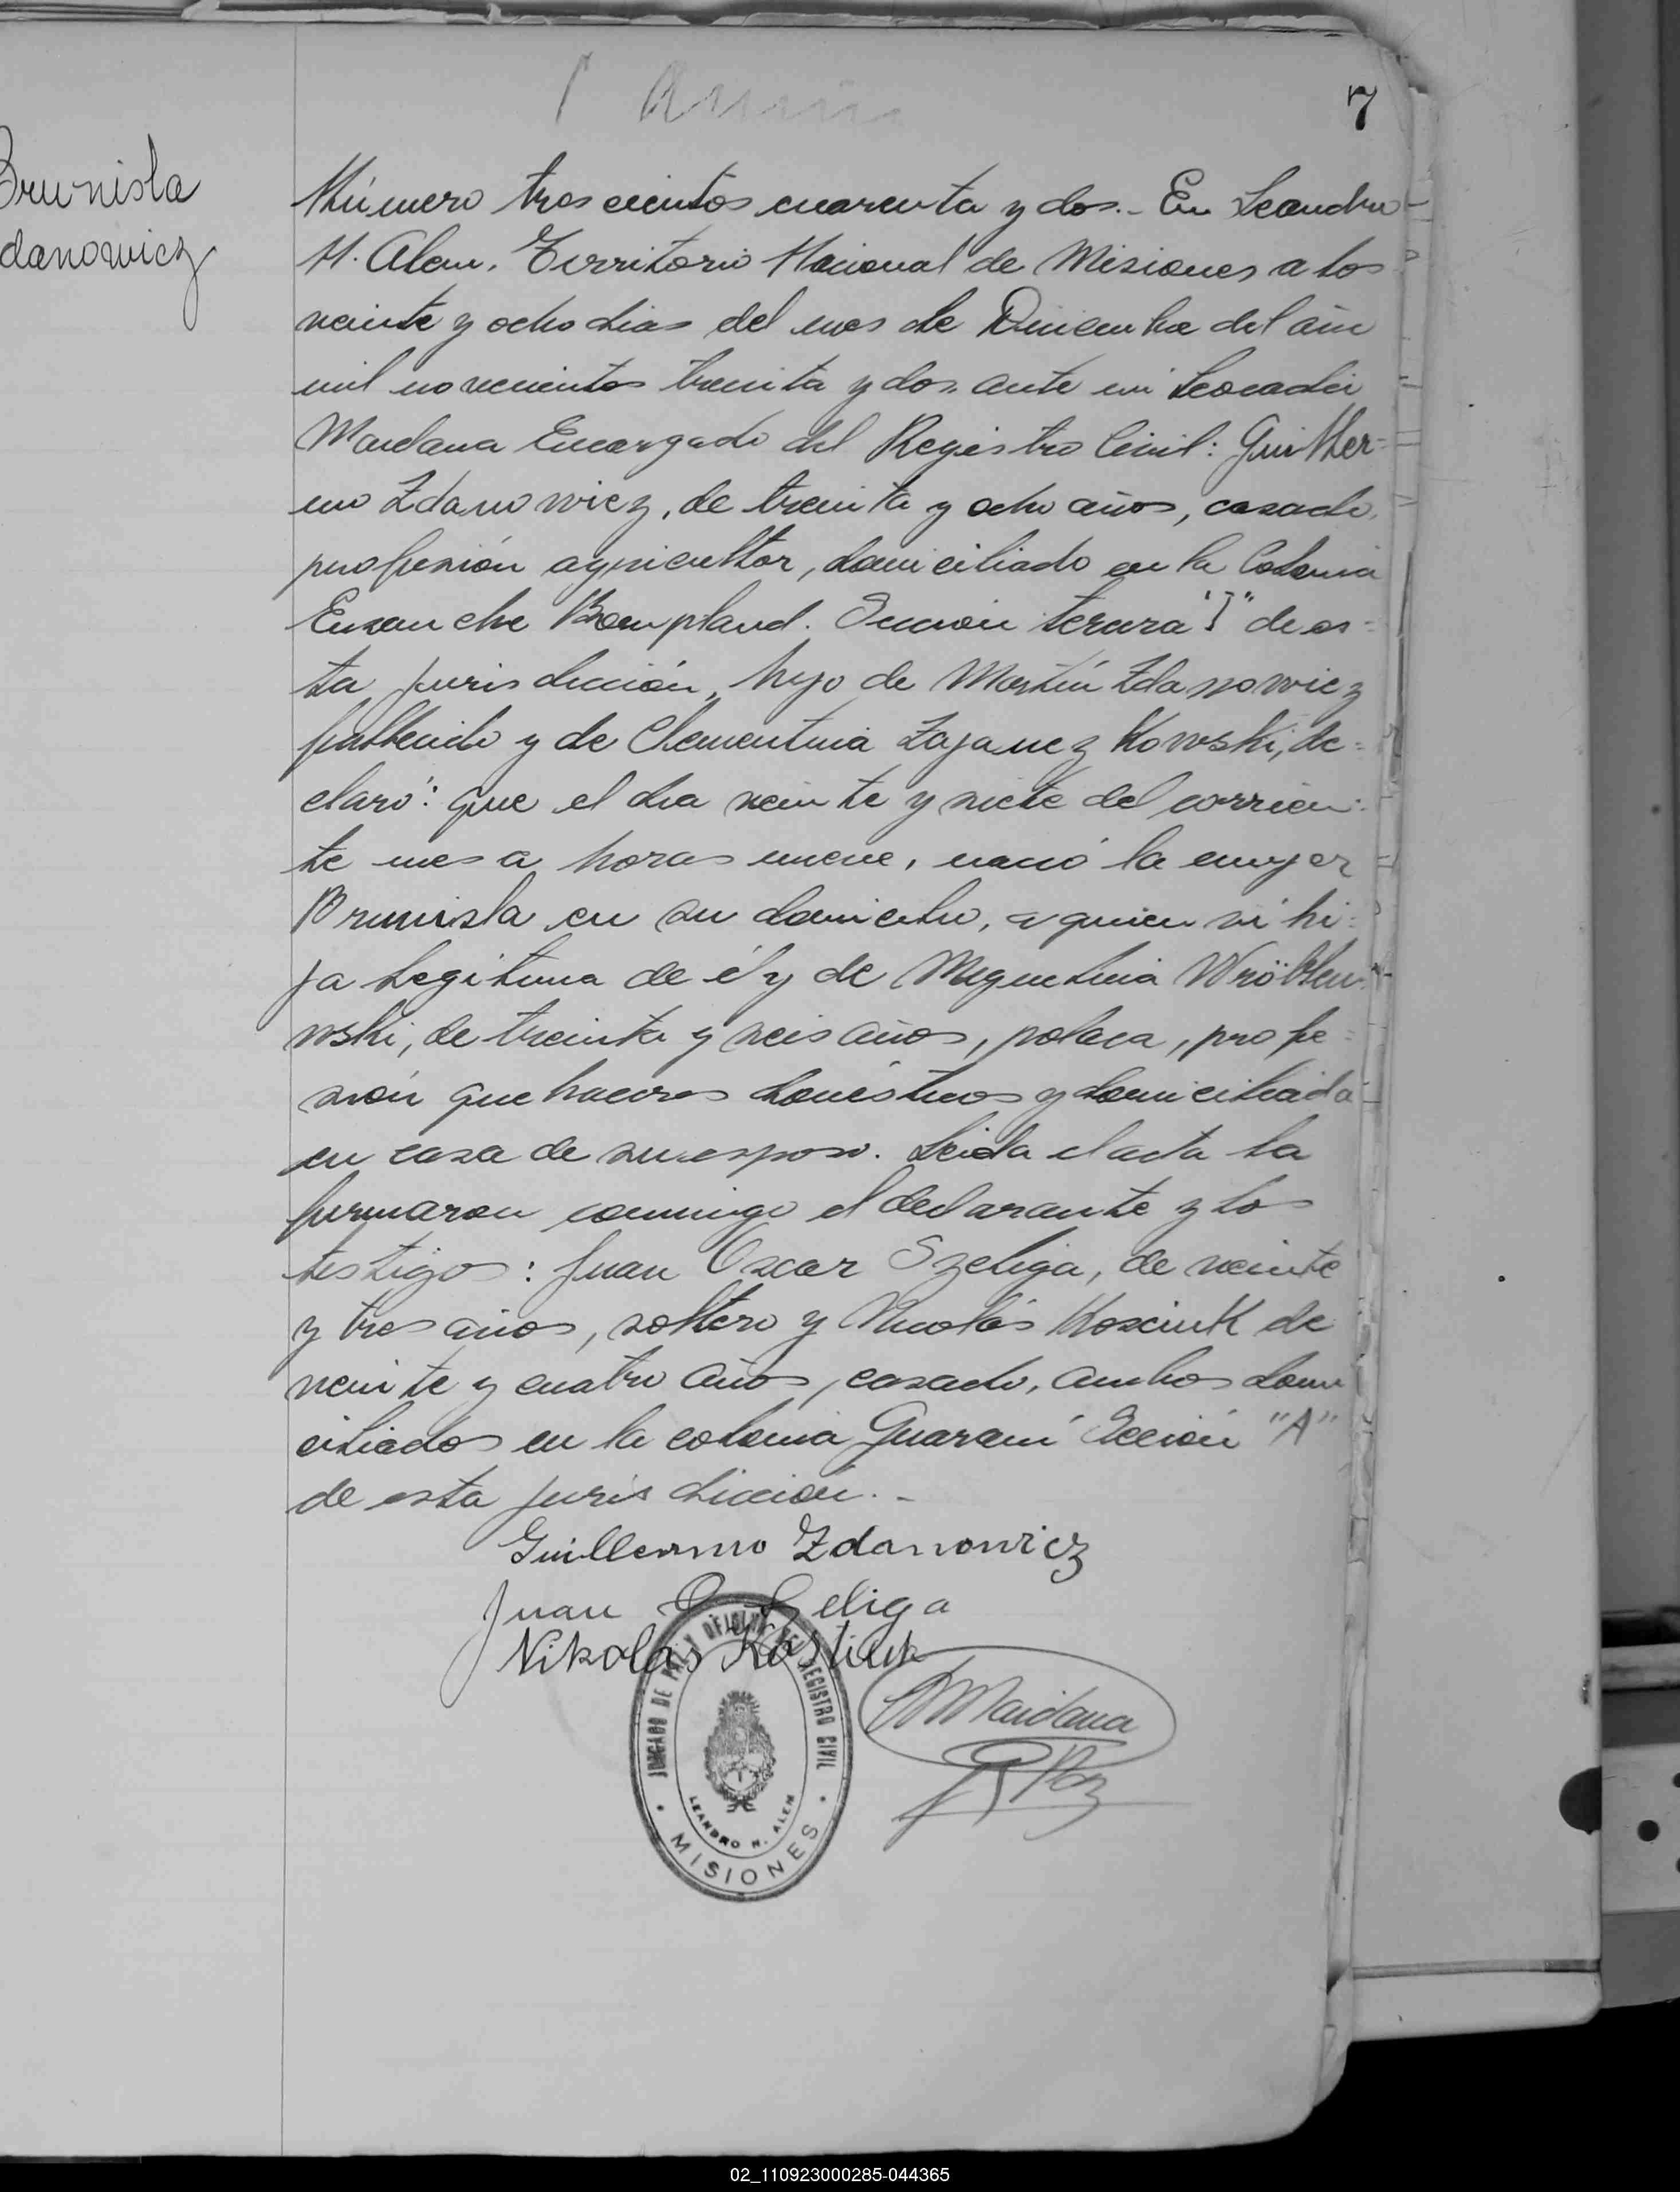 7
Brunisla
danowicz
Número tres cientos cuarenta y dos.- En Leandro
N. Alem, Territorio Nacional de Misiones a los
veinte y ocho dias del mes de Diciembre del año
mil novecientos treinta y dos, ante mi Leocadio
Maidana Encargado del Registro Civil: Guiller=
mo Zdanowicz, de treinta y ocho años, casado,
profesión agricultor, domiciliado en la Colonia
Ensanche Bompland. Sección tercera "J" de es=
ta jurisdicción, hijo de Martín Zdanowicz
fallecido y de Clementina Zajanczkowski, de=
claró: que el dia veinte y siete del corrien=
te mes a horas nueve, nació la mujer
Brunisla en su domicilio, a quien vi hi=
ja legitima de él y de Miguelina Wröblew=
wski, de treinta y seis años, polaca, profe=
sión quehaceres domésticos y domiciliada
en casa de su esposo. Leida el acta la
firmaron conmigo el declarante y los
testigos: Juan Oscar Szeliga, de veinte
y tres años, soltero y Nicolás Kosciuk de
veinte y cuatro años, casado, ambos domi
ciliados en la colonia Guaraní Sección "A"
de esta jurisdicción.-
Guillermo Zdanowicz
Juan O Szeliga
Nikolas Kostiuk
Maidana
JUZGADO DE PAZ Y OFICINA DE REGISTRO CIVIL
LEANDRO N. ALEM
MISIONES
02_110923000285-044365